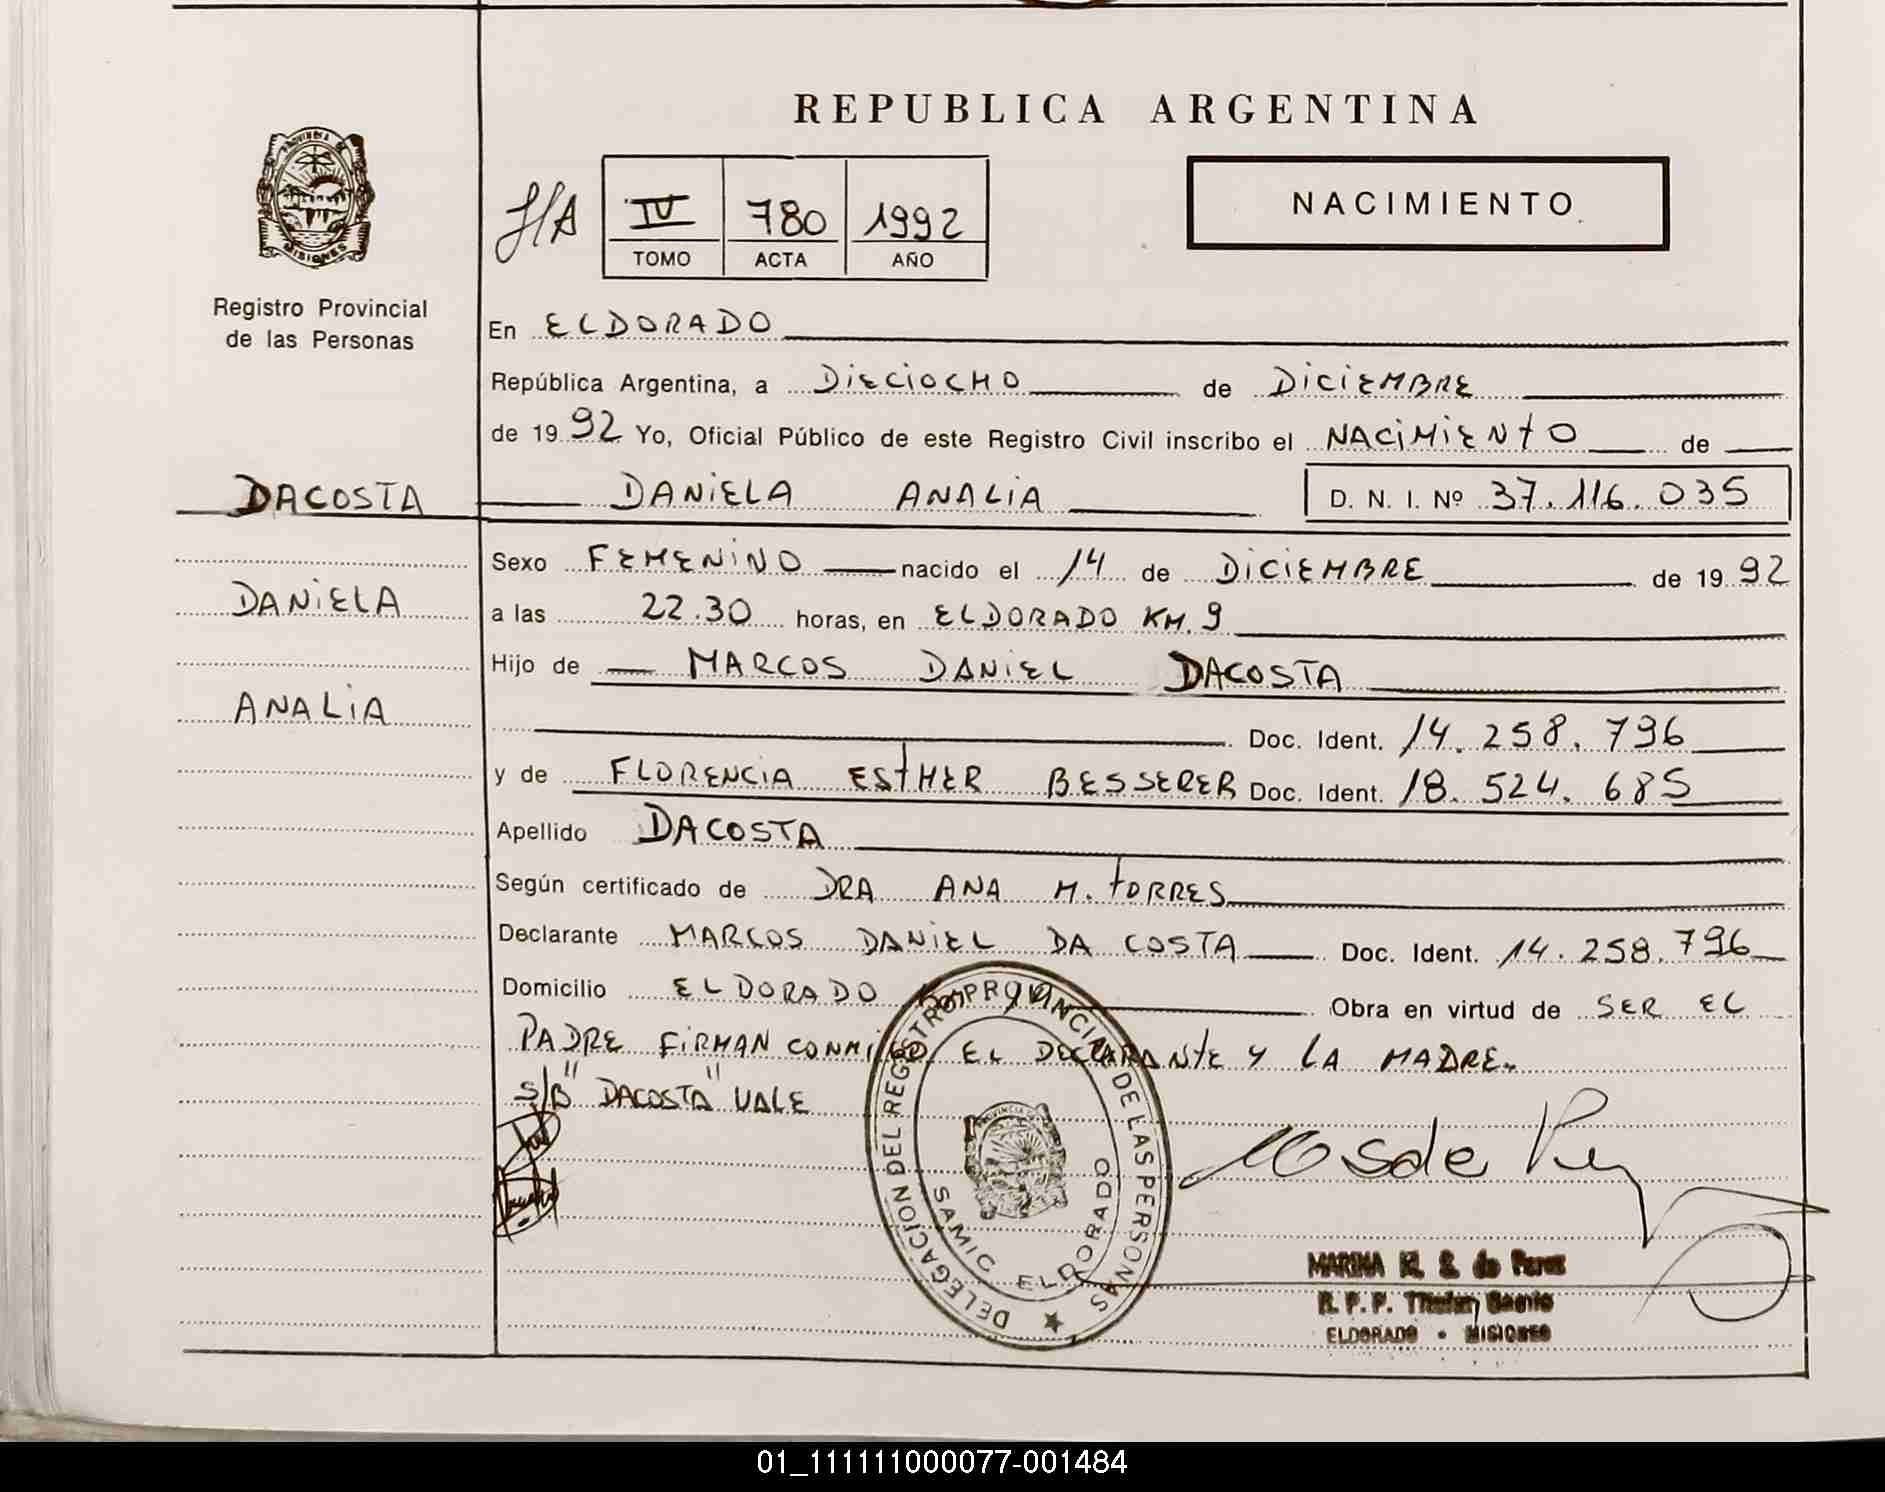 REPUBLICA ARGENTINA
PROVINCIA DE
MISIONES
Registro Provincial
de las Personas
IV 780 1992
TOMO ACTA AÑO
NACIMIENTO
En ELDORADO
República Argentina, a DiECiOCHO de DiCiEMBRE
de 1992 Yo, Oficial Público de este Registro Civil inscribo el NACiMiENtO de
DACOSTA
DANiELA ANALiA D. N. I. Nº 37.116.035
DANiELA
ANALiA
Sexo FEMENiNO nacido el 14 de DiCiEMBRE de 1992
a las 22.30 horas, en ELDORADO KM. 9
Hijo de MARCOS DANiEL DACOSTA
Doc. Ident. 14.258.796
y de FLORENCiA EStHER BESSERER Doc. Ident. 18.524.685
Apellido DACOSTA
Según certificado de DRA ANA M. tORRES
Declarante MARCOS DANiEL DA COSTA Doc. Ident. 14.258.796
Domicilio ELDORADO Obra en virtud de SER EL
PADRE FiRMAN CONMiGO, EL DECLARANtE Y LA MADRE.
S/B "DACOSTA" VALE
DELEGACION DEL REGISTRO PROVINCIAL DE LAS PERSONAS
SAMIC ELDORADO
MARINA R. S. de Perez
ELDORADO - MISIONES
01_111111000077-001484